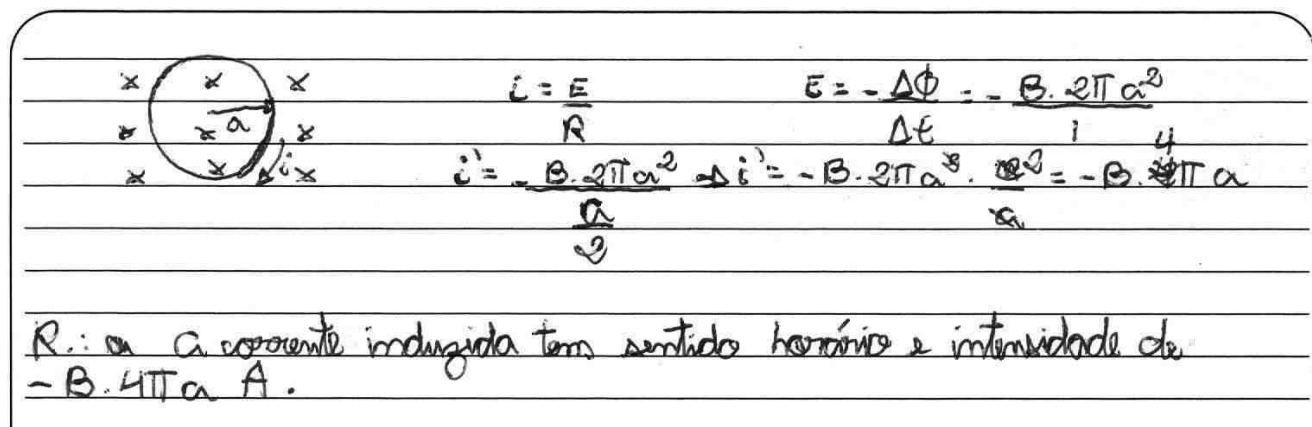 x x x
a
x x x
i
x x x
i = E/R    E = -ΔΦ/Δt = -B.2πa²/1
i = -B.2πa²/(a/2) → i = -B.2πa². 2/a = -B.4πa
R.: a corrente induzida tem sentido horário e intensidade de
-B.4πa A.